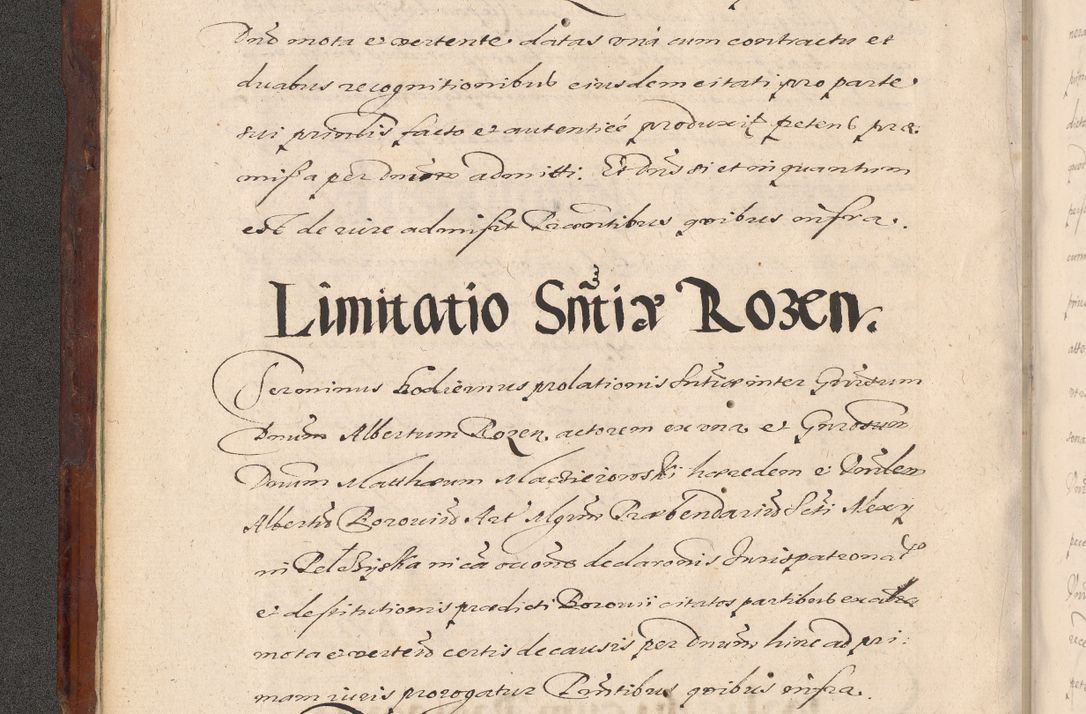 Dno mota et vertente datas una cum contractu et
duabus recognitionibus eiusdem citati pro parte
sui principalis facto et autenticé produxit petens præ:
missa per Dnum admitti. Et Dns si et in quantum
est de iure admisit Præntibus quibus infra.
Limitatio Sntiæ Rozen.
Terminus hodiernus prolationis Sntiæ inter Gnrosum
Dnum Albertum Rozen actorem ex una et Gnrosum
Dnum Matthæum Maczieiowski hæredem et Vnrlem
Albertũ Borowiũ Art Mgrum Præbendariũ Scti Alexy
in Pelchziska in cã occõne declaronis Jurispatronatꝰ
et destitutionis prædicti Borowii citatos partibus ex altera
mota et vertẽ certis de causis per Dnum hinc ad pri:
mam iuris prorogatur Præntibus quibus infra.